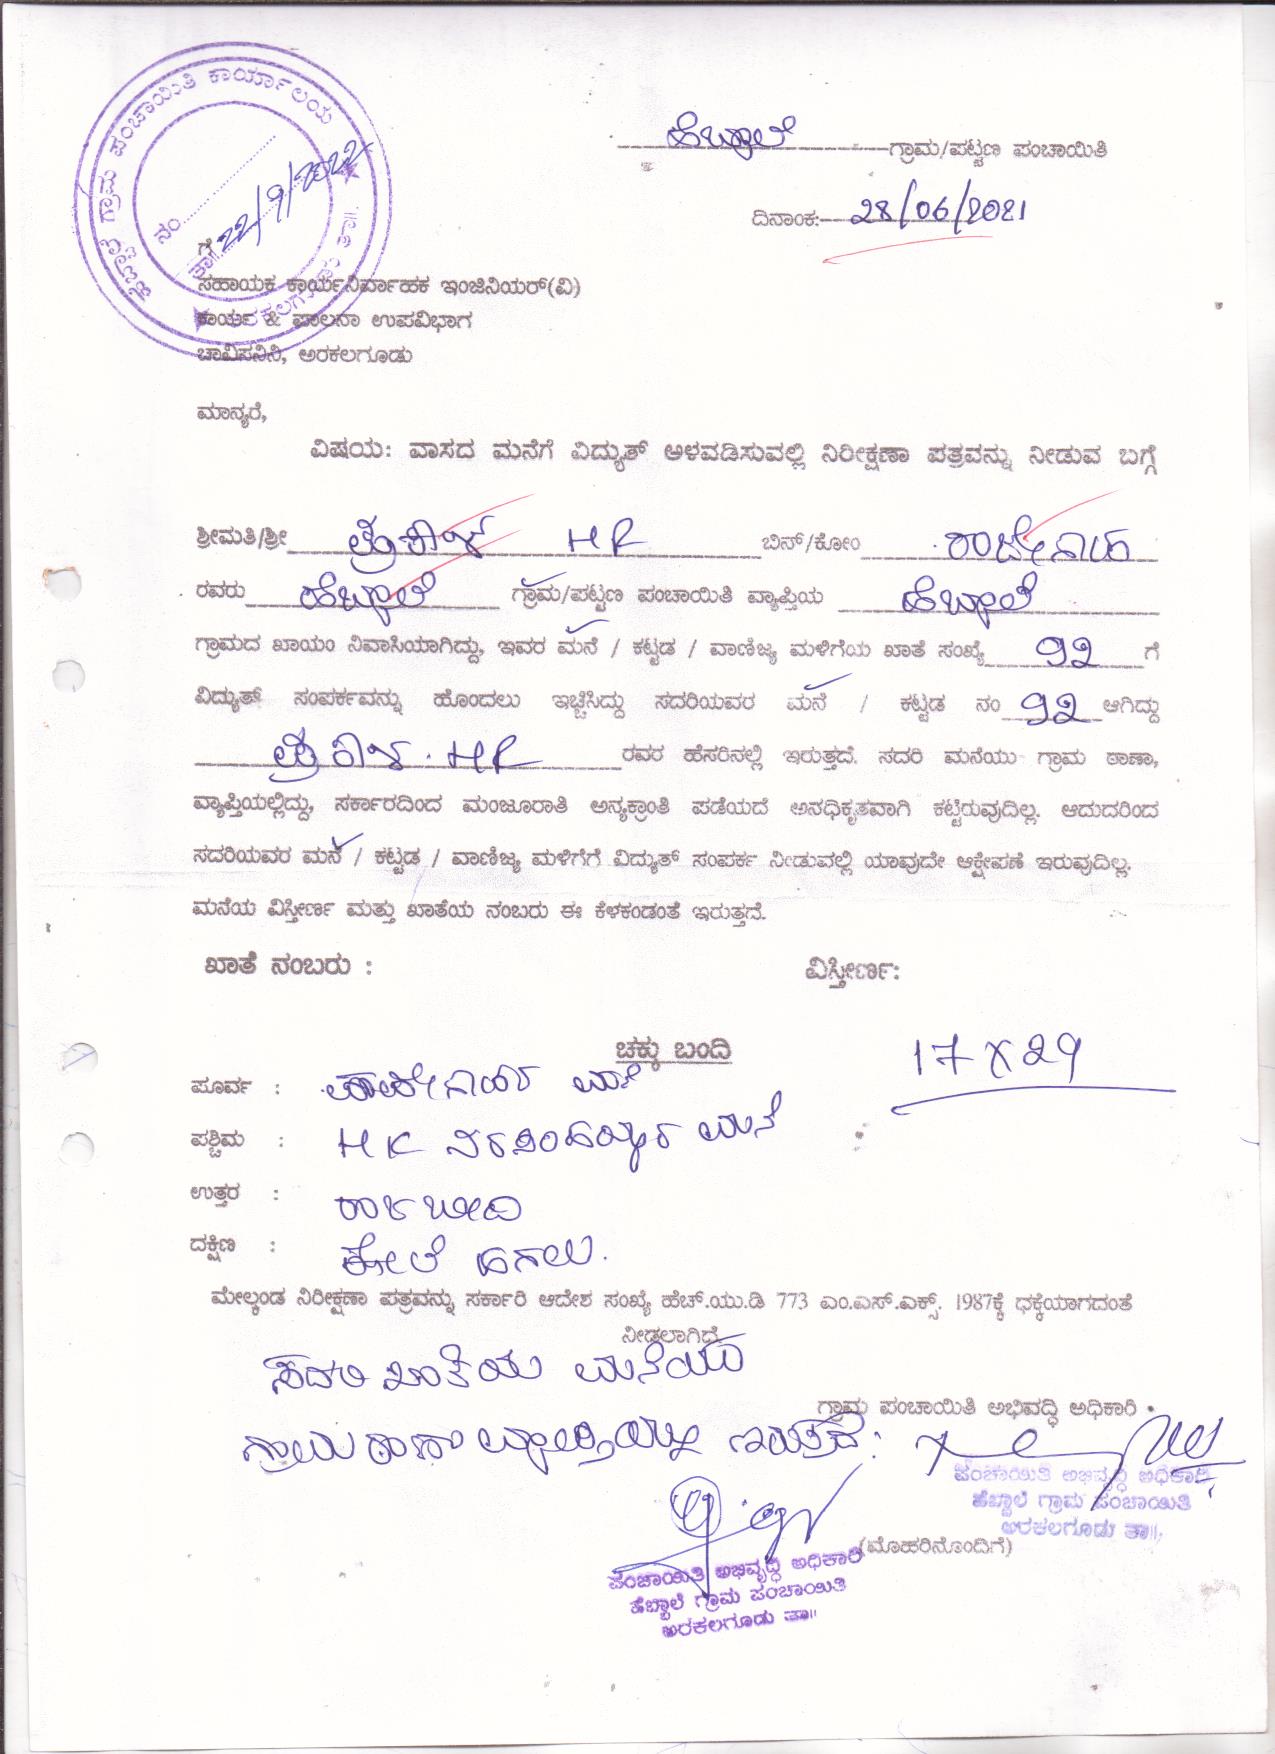 ಹೆಬ್ಬಾಲೆ ಗ್ರಾಮ ಪಂಚಾಯಿತಿ ಕಾರ್ಯಾಲಯ
ನಂ
ತಾ॥ 22/9/2022
ಹೆಬ್ಬಾಲೆ ಗ್ರಾಮ/ಪಟ್ಟಣ ಪಂಚಾಯಿತಿ
ದಿನಾಂಕ: 28/06/2021
ಗೆ
ಸಹಾಯಕ ಕಾರ್ಯನಿರ್ವಾಹಕ ಇಂಜಿನಿಯರ್(ವಿ)
ಕಾರ್ಯ & ಪಾಲನಾ ಉಪವಿಭಾಗ
ಚಾವಿಸನಿನಿ, ಅರಕಲಗೂಡು
ಮಾನ್ಯರೆ,
ವಿಷಯ: ವಾಸದ ಮನೆಗೆ ವಿದ್ಯುತ್ ಅಳವಡಿಸುವಲ್ಲಿ ನಿರೀಕ್ಷಣಾ ಪತ್ರವನ್ನು ನೀಡುವ ಬಗ್ಗೆ
ಶ್ರೀಮತಿ/ಶ್ರೀ HR ಬಿನ್/ಕೋಂ
ರವರು ಹೆಬ್ಬಾಲೆ ಗ್ರಾಮ/ಪಟ್ಟಣ ಪಂಚಾಯಿತಿ ವ್ಯಾಪ್ತಿಯ ಹೆಬ್ಬಾಲೆ
ಗ್ರಾಮದ ಖಾಯಂ ನಿವಾಸಿಯಾಗಿದ್ದು, ಇವರ ಮನೆ / ಕಟ್ಟಡ / ವಾಣಿಜ್ಯ ಮಳಿಗೆಯ ಖಾತೆ ಸಂಖ್ಯೆ 92 ಗೆ
ವಿದ್ಯುತ್ ಸಂಪರ್ಕವನ್ನು ಹೊಂದಲು ಇಚ್ಛಿಸಿದ್ದು ಸದರಿಯವರ ಮನೆ / ಕಟ್ಟಡ ನಂ 92 ಆಗಿದ್ದು
HR ರವರ ಹೆಸರಿನಲ್ಲಿ ಇರುತ್ತದೆ. ಸದರಿ ಮನೆಯು ಗ್ರಾಮ ಠಾಣಾ,
ವ್ಯಾಪ್ತಿಯಲ್ಲಿದ್ದು, ಸರ್ಕಾರದಿಂದ ಮಂಜೂರಾತಿ ಅನ್ಯಕ್ರಾಂತಿ ಪಡೆಯದೆ ಅನಧಿಕೃತವಾಗಿ ಕಟ್ಟಿರುವುದಿಲ್ಲ. ಆದುದರಿಂದ
ಸದರಿಯವರ ಮನೆ / ಕಟ್ಟಡ / ವಾಣಿಜ್ಯ ಮಳಿಗೆಗೆ ವಿದ್ಯುತ್ ಸಂಪರ್ಕ ನೀಡುವಲ್ಲಿ ಯಾವುದೇ ಆಕ್ಷೇಪಣೆ ಇರುವುದಿಲ್ಲ.
ಮನೆಯ ವಿಸ್ತೀರ್ಣ ಮತ್ತು ಖಾತೆಯ ನಂಬರು ಈ ಕೆಳಕಂಡಂತೆ ಇರುತ್ತದೆ.
ಖಾತೆ ನಂಬರು : ವಿಸ್ತೀರ್ಣ:
ಚಕ್ಕು ಬಂದಿ 17 X 29
ಪೂರ್ವ :
ಪಶ್ಚಿಮ : HK ನರಸಿಂಹಯ್ಯರ ಮನೆ
ಉತ್ತರ : ರಾಜಬೀದಿ
ದಕ್ಷಿಣ :
ಮೇಲ್ಕಂಡ ನಿರೀಕ್ಷಣಾ ಪತ್ರವನ್ನು ಸರ್ಕಾರಿ ಆದೇಶ ಸಂಖ್ಯೆ ಹೆಚ್.ಯು.ಡಿ 773 ಎಂ.ಎಸ್.ಎಕ್ಸ್. 1987ಕ್ಕೆ ಧಕ್ಕೆಯಾಗದಂತೆ
ನೀಡಲಾಗಿದೆ
ಸದರಿ ಖಾತೆಯ ಮನೆಯು
ಗ್ರಾಮ ಪಂಚಾಯಿತಿ ಅಭಿವದ್ಧಿ ಅಧಿಕಾರಿ
ಗ್ರಾಮ ಠಾಣಾ ವ್ಯಾಪ್ತಿಯಲ್ಲಿ ಇರುತ್ತದೆ.
ಪಂಚಾಯಿತಿ ಅಭಿವೃದ್ಧಿ ಅಧಿಕಾರಿ
ಹೆಬ್ಬಾಲೆ ಗ್ರಾಮ ಪಂಚಾಯಿತಿ
ಅರಕಲಗೂಡು ತಾ॥.
(ಮೊಹರಿನೊಂದಿಗೆ)
ಪಂಚಾಯಿತಿ ಅಭಿವೃದ್ಧಿ ಅಧಿಕಾರಿ
ಹೆಬ್ಬಾಲೆ ಗ್ರಾಮ ಪಂಚಾಯಿತಿ
ಅರಕಲಗೂಡು ತಾ॥